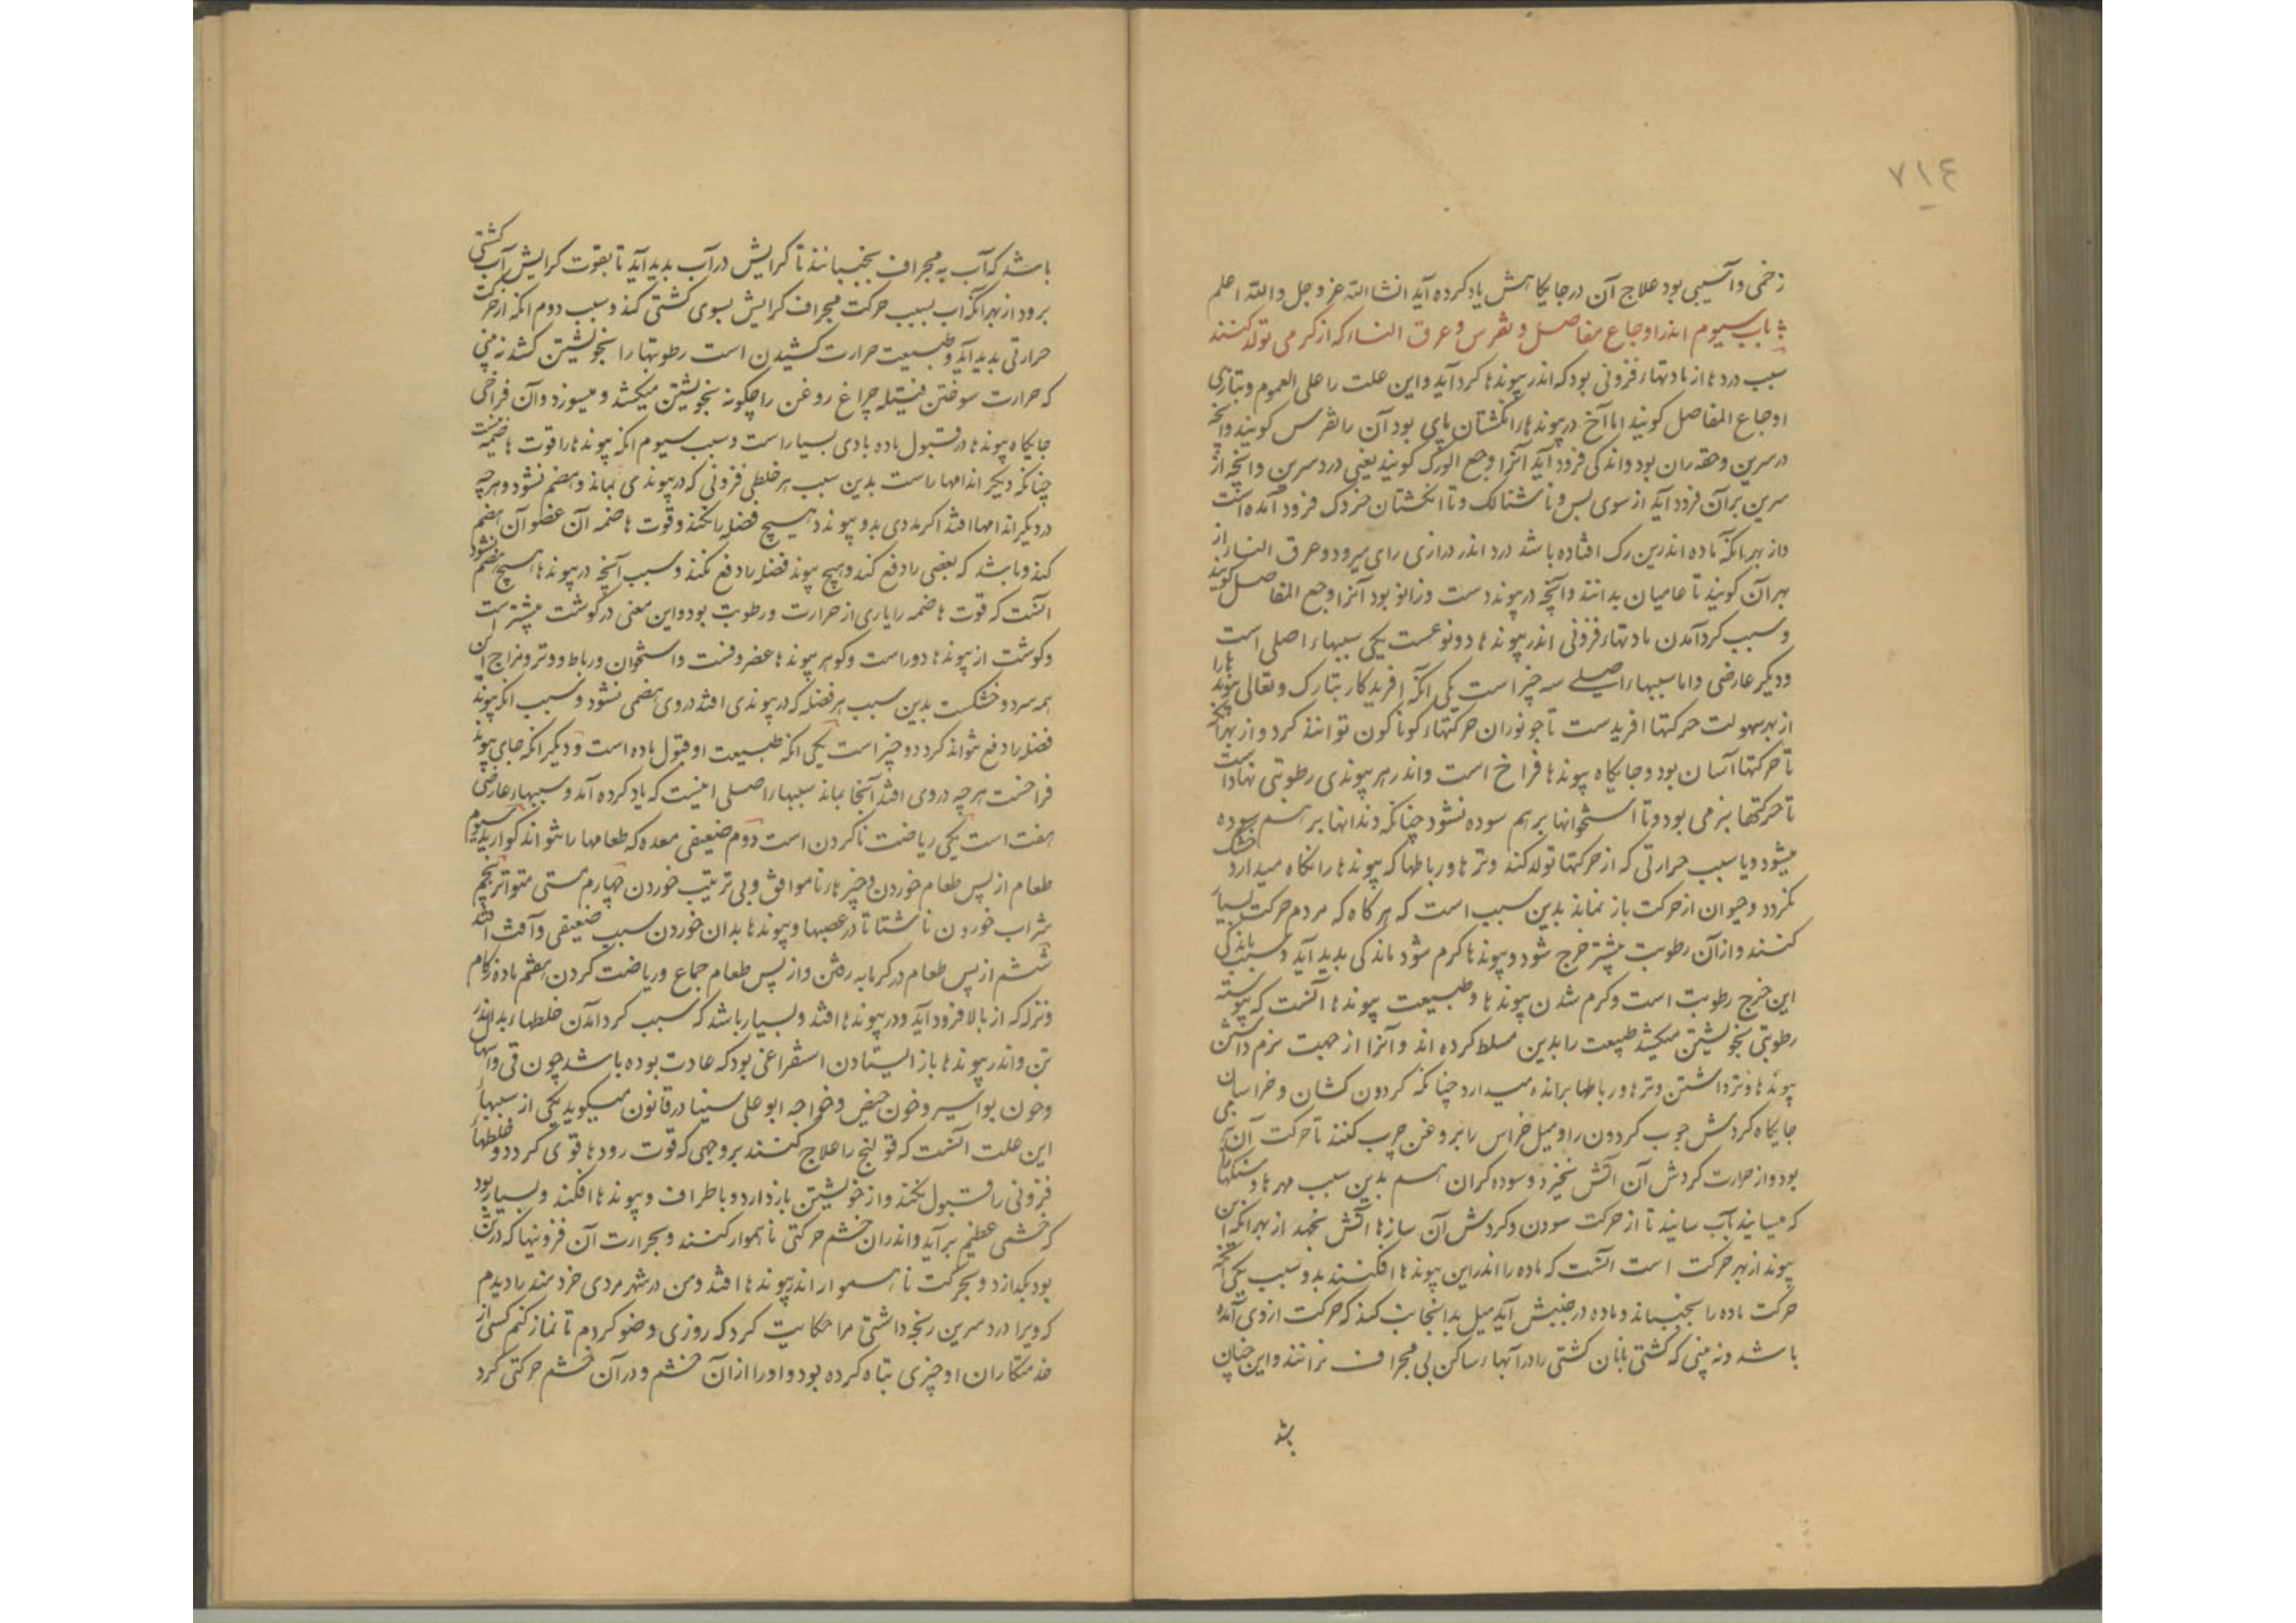 ٧١٤
زخمی و آسیبی بود علاج آن در جایکاهش یاد کرده آید انشا الله عز و جل والله اعلم
باب سیوم اندر اوجاع مفاصل و نقرس و عرق النساء که از کرمی تولد کنند
سبب دردها از مادتهاء فزونی بود که اندر پیوندها کرد آید و این علت را علی العموم و بتازی
اوجاع المفاصل کویند اما آنج در پیوندهاء انکشتان پای بود آن را نقرس کویند و آنچه
در سرین و حقه ران بود و اندکی فرود آید آنرا وجع الورک کویند یعنی درد سرین و آنچه از
سرین بر آن فرود آید از سوی پس و تا شتالنک و تا انکشتان خردک فرود آمده است
و از بهر انکه ماده اندرین رک افتاده باشد درد اندر درازی رای میرود و عرق النساء از
بهر آن کویند تا عامیان بدانند و آنچه در پیوند دست و زانو بود آنرا وجع المفاصل کویند
و سبب کرد آمدن مادتهاء فزونی اندر پیوندها دو نوعست یکی سببهاء اصلی است
و دیکر عارضی و اما سببهاء اصلی سه چیز است یکی آنکه آفریدکار تبارک و تعالی پیوندها را
از بهر سهولت حرکتها افریدست تا جونوران حرکتهاء کوناکون توانند کرد و از بهر آنکه
تا حرکتها آسان بود و جایکاه پیوندها فراخ است و اندر هر پیوندی رطوبتی نهاداست
تا حرکتها بنرمی بود و تا استخوانها بر هم سوده نشود چنانکه دندانها بر هم سوده
میشود و یا سبب حرارتی که از حرکتها تولد کند وترها و رباطها که پیوندها را نکاه میدارد خشک
نکردد و حیوان از حرکت باز نماند بدین سبب است که هر کاه که مردم حرکت بسیار
کنند و از آن رطوبت بیشتر خرج شود و پیوندها کرم شود ماندکی بدید آید و سبب ماندکی
این خرج رطوبت است و کرم شدن پیوندها و طبیعت پیوندها آنست که پیوسته
رطوبتی بخویشتن میکشد طبیعت را بدین مسلط کرده اند و آنرا از جهت نرم داشتن
پیوندها و تر داشتن وترها و رباطها براند میدارد چنانکه کردون کشان و خراسان
جایکاه کردش چوب کردون را و میل خراس را بروغن چرب کنند تا حرکت آن
بود و از حرارت کردش آن آتش نخیزد و سوده کران هم بدین سبب مهرها و سنکها
که میسایند بآب سایند تا از حرکت سودن و کردش آن سازها آتش نجهد از بهر انکه این
پیوند از بهر حرکت است آنست که ماده را اندر این پیوندها افکنند بدو سبب یکی آنکه
حرکت ماده را بجنباند و ماده در جنبش آید میل بدانجانب کند که حرکت از وی آمده
باشد و نه بینی که کشتی بانان کشتی را در آبهاء ساکن بی مجراف نرانند و این چنان
باشد
باشد که آب به مجراف بجنبانند تا کرایش در آب بدید آید تا بقوت کرایش آب کشتی
برود از بهر آنکه آب بسبب حرکت مجراف کرایش بسوی کشتی کند و سبب دوم انکه از حرکت
حرارتی بدید آید و طبیعت حرارت کشیدن است رطوبتها را بخویشتن کشد نه بینی
که حرارت سوختن فتیله چراغ روغن را چکونه بخویشتن میکشد و میسوزد و آن فراخی
جایکاه پیوندها در قبول ماده یادی بسیار است و سبب سیوم انکه پیوندها را قوت هاضمه نیست
چنانکه دیکر اندامها راست بدین سبب هر خلطی فزونی که در پیوندی بماند و هضم نشود و هرچه
در دیکر اندامها افتد اکر مددی بدو پیوندد هیچ فضله را نکند و قوت هاضمه آن عضو آن هضم
کند و باشد که بعضی را دفع کند و هیچ پیوند فضله را دفع نکند و سبب آنچه در پیوندها هیچ هضم نشود
آنست که قوت هاضمه را یاری از حرارت و رطوبت بود و این معنی در کوشت بیشترست
و کوشت از پیوندها دور است و کوهر پیوندها غضروفست و استخوان و رباط و وتر و مزاج این
همه سرد و خشکست بدین سبب هر فضله که در پیوندی افتد در وی هضمی نشود و سبب انکه پیوند
فضله را دفع نتواند کرد دو چیز است یکی انکه طبیعت او قبول ماده است و دیکر انکه جای پیوند
فراخست هرچه در وی افتد آنجا بماند سببهاء اصلی اینست که یاد کرده آمد و سببهاء عارضی
هفت است یکی ریاضت ناکردن است دوم ضعیفی معده که طعامها را نتواند کوارید سیوم
طعام از پس طعام خوردن و چیزهاء ناموافق و بی ترتیب خوردن چهارم مستی متواتر پنجم
شراب خوردن ناشتا تا در عصبها و پیوندها بدان خوردن سبب ضعیفی و آفت افتد
ششم از پس طعام در کرمابه رفتن و از پس طعام جماع و ریاضت کردن هفتم ماده زکام
و نزله که از بالا فرود آید و در پیوندها افتد و بسیار باشد که سبب کرد آمدن خلطهاء بد اندر
تن و اندر پیوندها باز ایستادن استفراغی بود که عادت بوده باشد چون قی و اسهال
و خون بواسیر و خون حیض و خواجه ابو علی سینا در قانون میکوید یکی از سببهاء
این علت آنست که قولنج را علاج کنند بر وجهی که قوت رودها قوی کردد و خلطهاء
فزونی را قبول نکند و از خویشتن باز دارد و باطراف و پیوندها افکند و بسیار بود
که خشمی عظیم برآید و اندران خشم حرکتی ناهموار کنند و بحرارت آن فزونیها که در تن
بود بکدازد و بحرکت ناهموار اندر پیوندها افتد و من در شهر مردی خردمند را دیدم
که ویرا درد سرین رنجه داشتی مرا حکایت کرد که روزی وضو کردم تا نماز کنم کسی از
خدمتکاران او چیزی تباه کرده بود و او را از آن خشم و در آن خشم حرکتی کرد